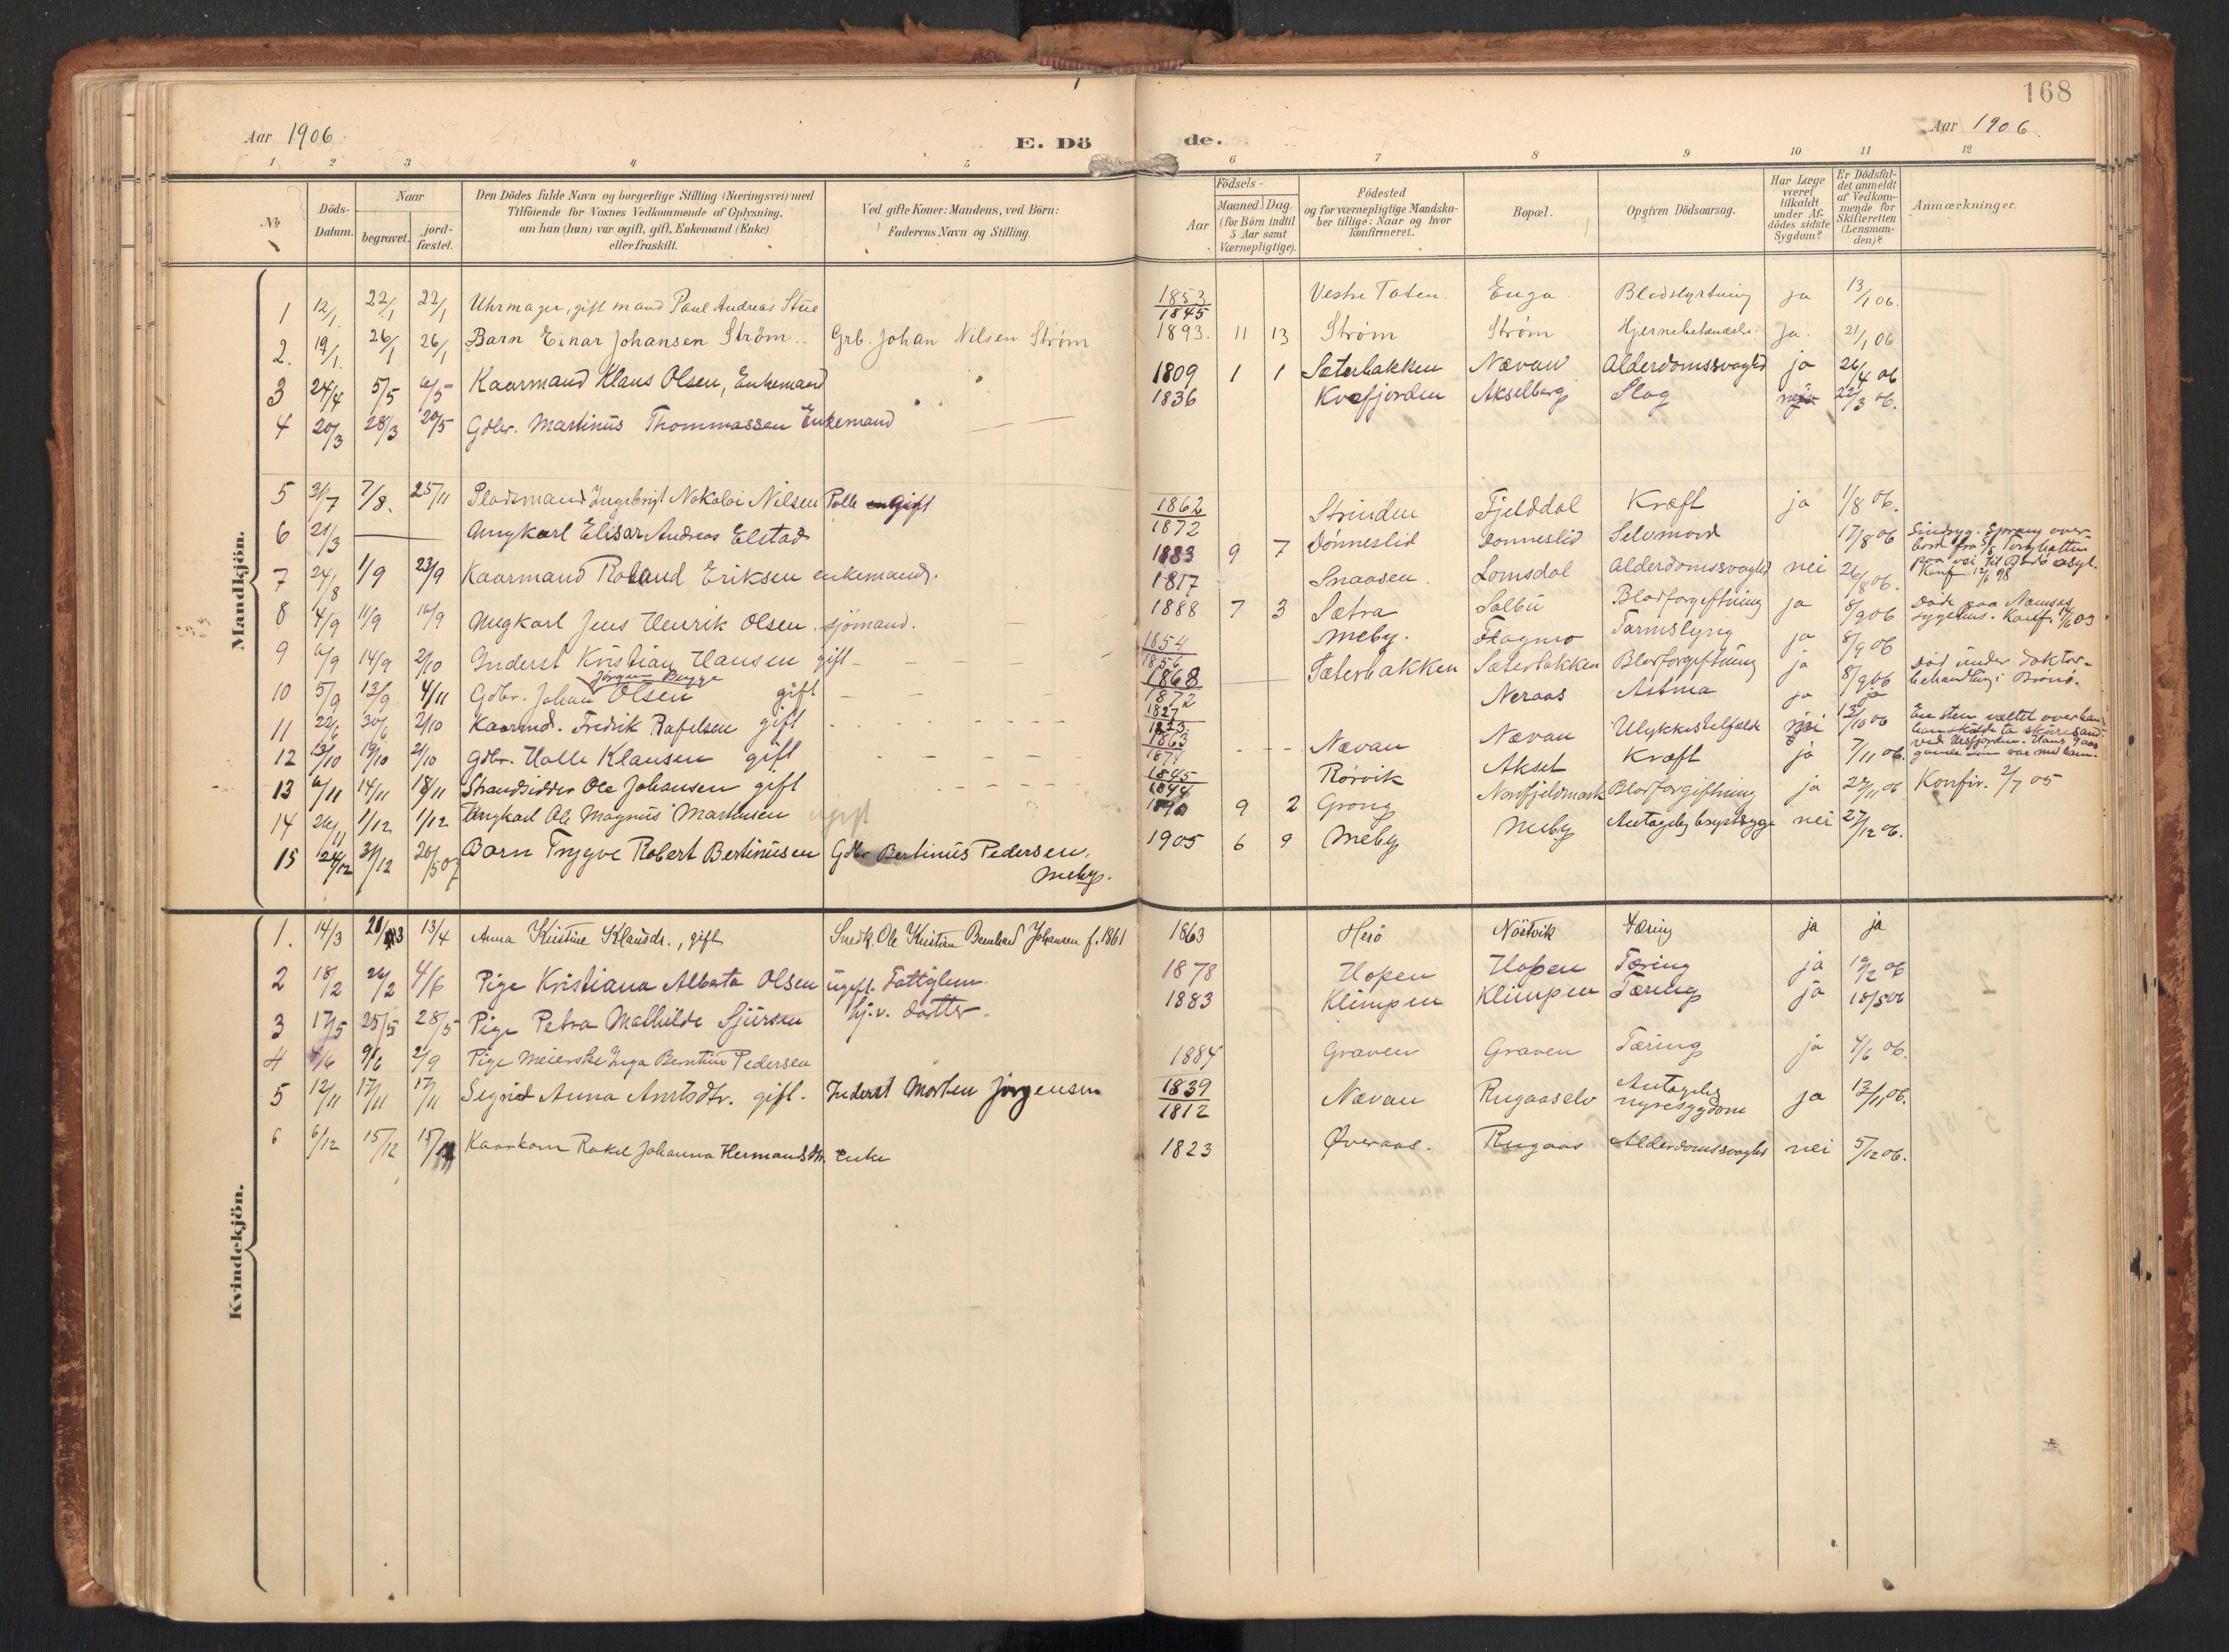 168
Aar 1906
E. Dö
de.
Aar 1906.
1 2 3 4 5
6 7 8 9 10 11 12
No
Döds-Datum.
Naar
begravet.
jord-fæstet.
Den Dödes fulde Navn og borgerlige Stilling (Næringsvei) med
Tilföiende for Voxnes Vedkommende af Oplysning,
om han (hun) var ugift, gift, Enkemand (Enke)
eller fraskilt.
Ved gifte Koner: Mandens, ved Börn:
Faderens Navn og Stilling.
Födsels-
Aar
Maaned. Dag.
(for Börn indtil
5 Aar samt
Værnepligtige).
Födested
og for værnepligtige Mandska-
ber tillige: Naar og hvor
konfirmeret.
Bopæl.
Opgiven Dödsaarsag.
Har Læge
været
tilkaldt
under Af-
dödes sidste
Sygdom?
Er Dödsfal-
det anmeldt
af Vedkom-
mende for
Skifteretten
(Lensman-
den)?
Anmærkninger.
Mandkjön.
1 12/1. 22/1 22/1 Uhrmager, gift mand Paul Andreas Stue 1853 1845 Vestre Toten. Enga Blodstyrtning ja 13/1 06.
2. 19/1. 26/1 26/1 Barn Einar Johansen Ström Grb. Johan Nilsen Ström 1893. 11 13 Ström Ström Hjernebetændelse. Ja. 21/1 06
3 24/4 5/5 6/5 Kaarmand Klaus Olsen, Enkemand 1809 1 1 Sæterbakken Nævan Alderdomssvaghed ja 26/4 06
4 20/3 28/3 20/5 Gdbr. Martinus Thommassen Enkemand 1836 Kvefjorden Akselberg Slag 22/3 06.
5 31/7 7/8. 25/11 Pladsmand Ingebrigt Nokolai Nilsen Polle gift 1862 1872 Strinden Fjelddal Kræft ja 1/8 06.
6 21/3 Ungkarl Elisar Andreas Elstad 1883 9 7 Dönneslid Donneslid Selvmord 17/8 06 Sindsyg. Sprang over-
bord fra S/S Torghatten
paa vei til Bodö asyl.
Konf 12/6 98
7 24/8 1/9 23/9 Kaarmand Roland Eriksen enkemand. 1817 Snaasen. Lomsdal Alderdomssvaghed nei 26/8 06.
8 4/9 11/9 16/9 Ungkarl Jens Henrik Olsen. sjömand. 1888 7 3 Sætra Salbu Blodforgiftning ja 8/9 06 Döde paa Namsos
sygehus. Konf. 14/6 03
9 6/9 14/9 2/10 Inderst Kristian Hansen gift 1854 1856 Meby. Flagmo Tarmslyng ja 8/9 06
Jörgen Bugge
10 5/9 13/9 4/11 Gdbr. Johan Olsen gift 1868 1872 Sæterbakken Sæterbakken Blodforgiftning ja 8/9 06 Död under doktor-
behandling i Brönö.
11 22/6 30/6 2/10 Kaarmd. Fredrik Rafelsen gift 1827 1823 Neraas Astma ja ja
12 13/10 19/10 21/10 Gdbr. Halle Klausen gift 1863 1871 Nævan Nævan Ulykkestilfælde nei 15/10 06 En sten væltet over ham
13 6/11 14/11 18/11 Strandsidder Ole Johansen gift 1845 1844 Rörvik Aksel Kræft ja 7/11 06.
14 26/11 1/12 1/12 Ungkarl Ole Magnus Martinsen ugift 1890 9 2 Grong Nordfjeldmark Blodforgiftning ja 27/11 06 Konfir. 2/7 05
15 24/12 31/12 20/5 07 Barn Trygve Robert Bertinusen Gdbr Bertinus Pedersen,
Meby.
1905 6 9 Meby Meby Antagelig brystsyge nei 27/12 06.
Kvindekjön.
1. 14/3 13/4 Anna Kristine Klausdr., gift Snedk. Ole Kristian Bernhard Johansen f. 1861 1863 Herö Nöstvik Tæring ja ja
2 18/2 26/2 4/6 Pige Kristiana Alberta Olsen ugift. Fattiglem. 1878 Hopen Hopen Tæring ja 19/2 06
3 17/5 25/5 28/5 Pige Petra Mathilde Sjursen hj. v. datter. 1883 Klimpen Klimpen Tæring ja 18/5 06
4 4/6 9/6 2/9 Pige Meierske Inga Berntine Pedersen 1884 Graven Graven Tæring ja 4/6 06.
5 12/11 17/11 17/11 Sigrid Anna Arntsdtr. gift. Inderst Morten Jörgensen 1839 1812 Nævan Rugaaselv Antagelig
nyresygdom ja 13/11 06.
6 6/12 15/12 Kaarkone Rakel Johanna Hermansdtr. Enke 1823 Øveraas. Rugaas Alderdomssvaghed nei 5/12 06.